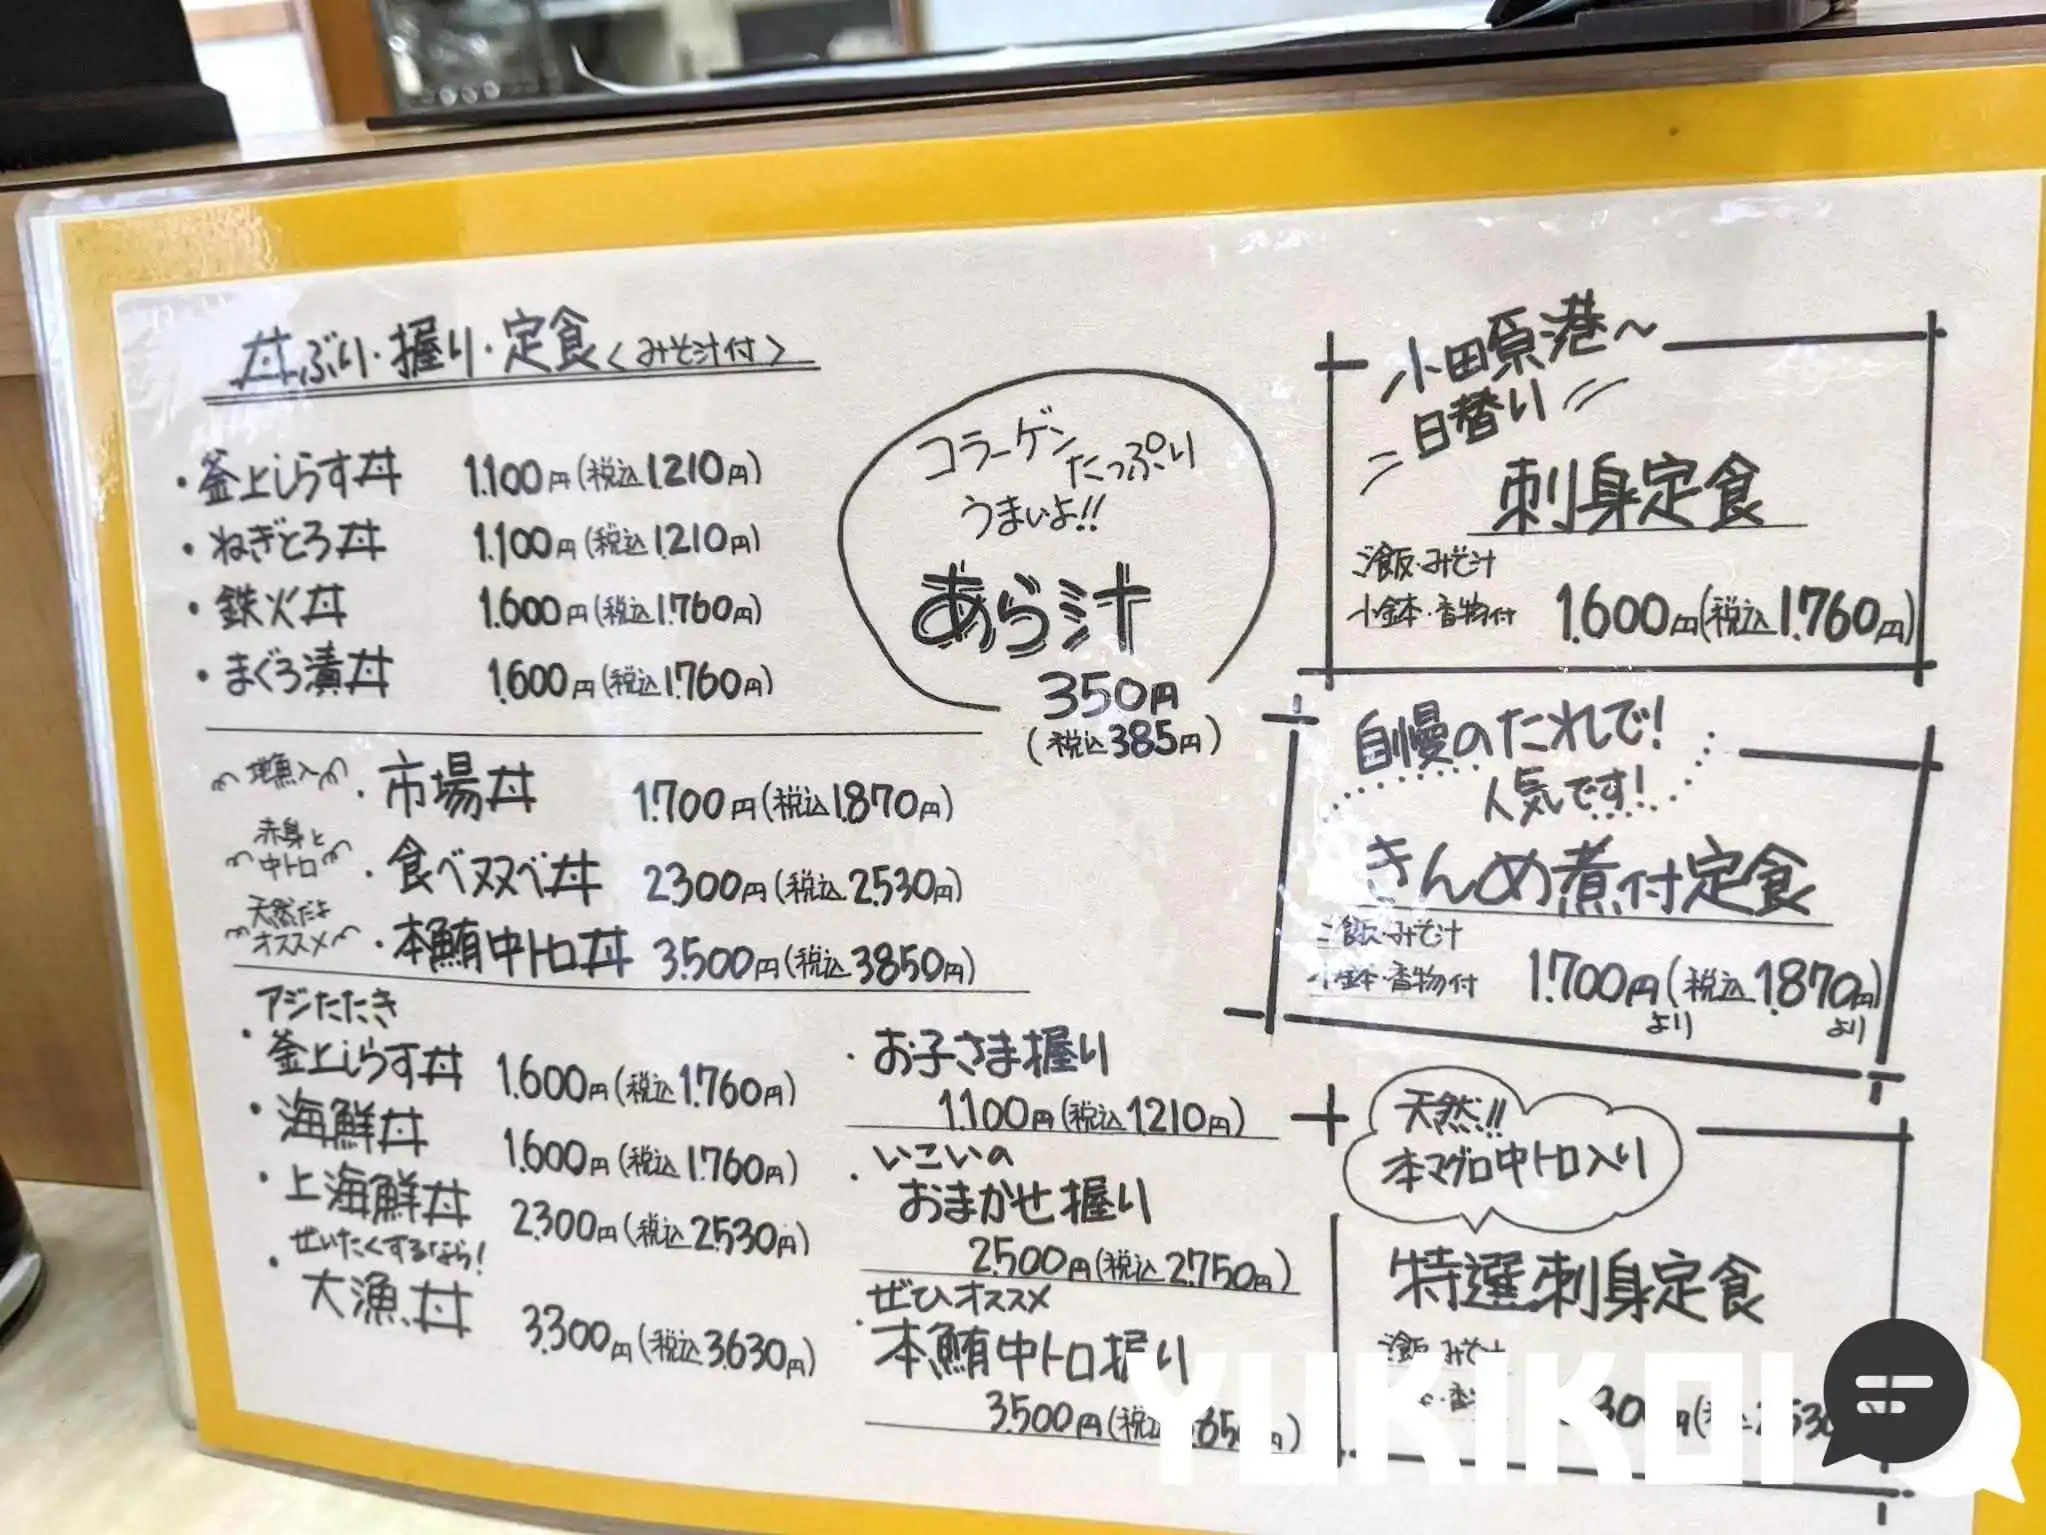 丼ぶり・握り・定食〈みそ汁付〉
・釜上しらす丼 1.100円(税込1.210円)
・ねぎとろ丼 1.100円(税込1.210円)
・鉄火丼 1.600円(税込1.760円)
・まぐろ漬丼 1.600円(税込1.760円)
コラーゲン
たっぷり
うまいよ!!
あら汁
350円
(税込385円)
地魚入
・市場丼 1.700円(税込1.870円)
赤身と
中トロ
・食べ双べ丼 2300円(税込2.530円)
天然だよ
オススメ
・本鮪中トロ丼 3.500円(税込3850円)
アジたたき
・釜上しらす丼 1.600円(税込1.760円)
・海鮮丼 1.600円(税込1.760円)
・上海鮮丼 2.300円(税込2.530円)
ぜいたくするなら!
・大漁丼 3.300円(税込3.630円)
・お子さま握り
1.100円(税込1.210円)
・いこいの
おまかせ握り
2.500円(税込2.750円)
ぜひオススメ
・本鮪中トロ握り
3.500円(税込
小田原港〜
日替り
刺身定食
ご飯・みそ汁
小鉢・香物付 1.600円(税込1.760円)
自慢のたれで!
人気です!
きんめ煮付定食
ご飯・みそ汁
小鉢・香物付 1.700円(税込1.870円)
より より
天然!!
本マグロ中トロ入り
特選刺身定食
ご飯 みそ汁
YUKIKOI